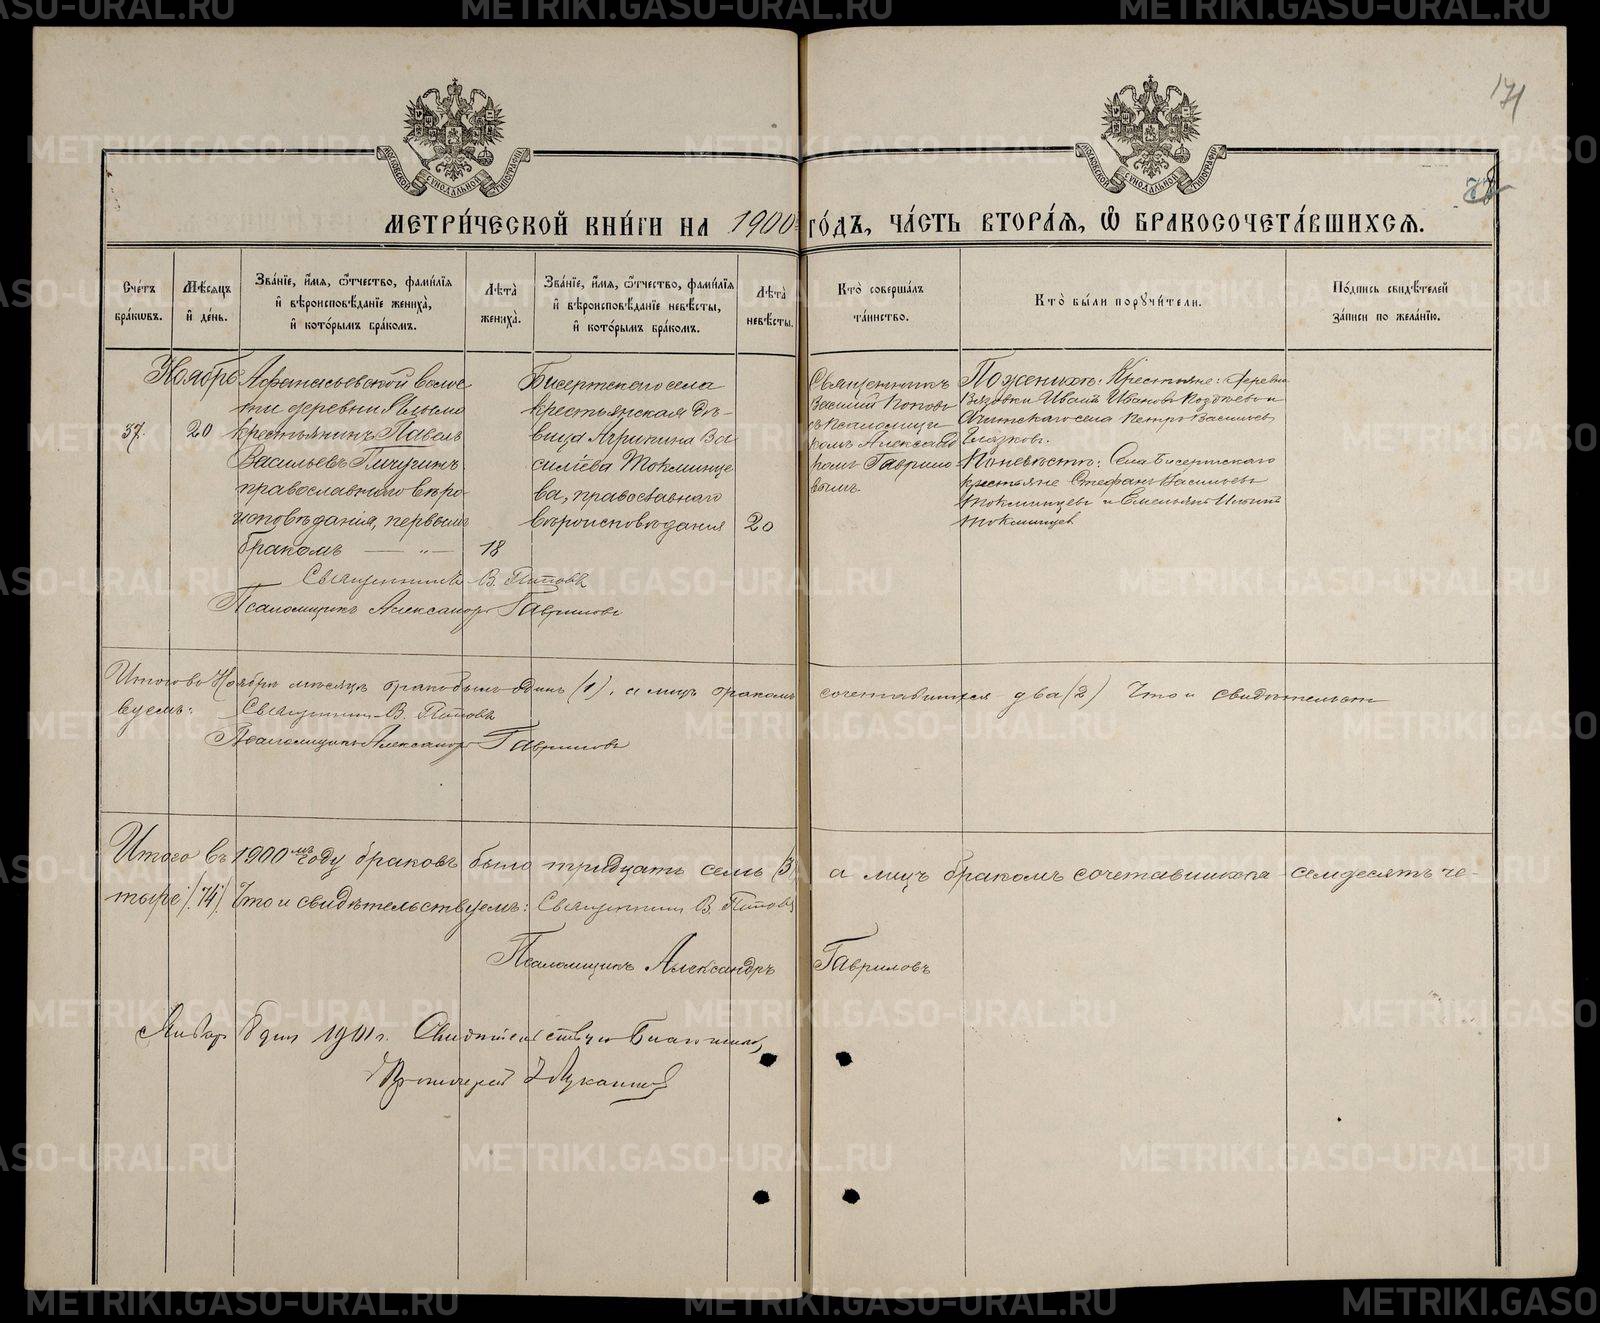 171
МЕТРИ́ЧЕСКОЙ КНИ́ГИ НА 1900 ГО́ДЪ, ЧА́СТЬ ВТОРА́Я, Ѽ БРАКОСОЧЕТА́ВШИХСЯ.
Сче́тъ бра́кѡвъ.
Мѣ́сяцъ и҆ де́нь.
Зва́нїе, и҆́мя, ѻ҆́тчество, фами́лїя и҆ вѣроисповѣ́данїе жениха̀, и҆ кото́рымъ бра́комъ.
Лѣ́та̀ жениха̀.
Зва́нїе, и҆́мя, ѻ҆́тчество, фами́лїя и҆ вѣроисповѣ́данїе невѣ́сты, и҆ кото́рымъ бра́комъ.
Лѣ́та̀ невѣ́сты.
Кто̀ соверша́лъ та́инство.
Кто̀ бы́ли порꙋчи́тели.
По́дпись свидѣ́телей за́писи по жела́нїю.
Ноябрь
37.
20
Афанасьевской волос
ти деревни
крестьянинъ Павелъ
Васильевъ Пичугинъ
православнаго вѣро
исповѣдания, первымъ
бракомъ — „ —
18
Бисертскаго села
крестьянская дѣ-
вица Агрипина Ва
силиева Токминце
ва, православнаго
вѣроисповѣдания
20
Священникъ
Василий Поповъ
съ псаломщи
комъ Александ
ромъ Гаврило
вымъ.
По женихѣ: Крестьяне: деревни
Вязовки Иванъ Ивановъ и
Ачитскаго села Петръ Васильевъ
Глазковъ.
По невѣстѣ: Села Бисертскаго
крестьяне Стефанъ Васильевъ
Токминцевъ и Емельянъ Ильинъ
Токминцевъ
Священникъ В. Поповъ
Псаломщикъ Александръ Гавриловъ
Итого въ Ноябрѣ мѣсяцѣ браковъ былъ одинъ (1), а лицъ бракомъ сочетавшихся два (2) Что и свидѣтельст
вуемъ: Священникъ В. Поповъ
Псаломщикъ Александръ Гавриловъ
Итого въ 1900мъ году браковъ было тридцать семь (37) а лицъ бракомъ сочетавшихся семдесятъ че-
тыре /74/. Что и свидѣтельствуемъ: Священникъ В. Поповъ
Псаломщикъ Александръ Гавриловъ
Январ 8 дня 1901 г. Свидѣтельствую Благочинн.
Протоиерей
METRIKI.GASO-URAL.RU